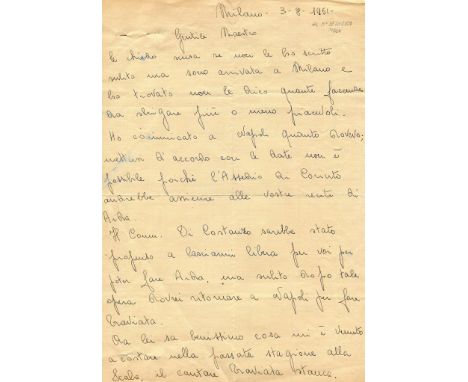 Milano - 3-8-1961-
Gentile Maestro
le chiedo scusa se non le ho scritto
subito ma sono arrivata a Milano e
ho trovato non le dico quante faccende
da sbrigare più o meno piacevoli.
Ho comunicato a Napoli quanto dovevo;
mettersi d'accordo con le date non è
possibile perché l'Assedio di Corinto
andrebbe assieme alle vostre recite di
Aida
Il Comm. Di Costanzo sarebbe stato
propenso a lasciarmi libera per voi per
poter fare Aida, ma subito dopo tale
opera dovrei ritornare a Napoli per fare
Traviata.
Ora lei sa benissimo cosa mi è venuto
a costare nella passata stagione alla
Scala, il cantare Traviata stanca,